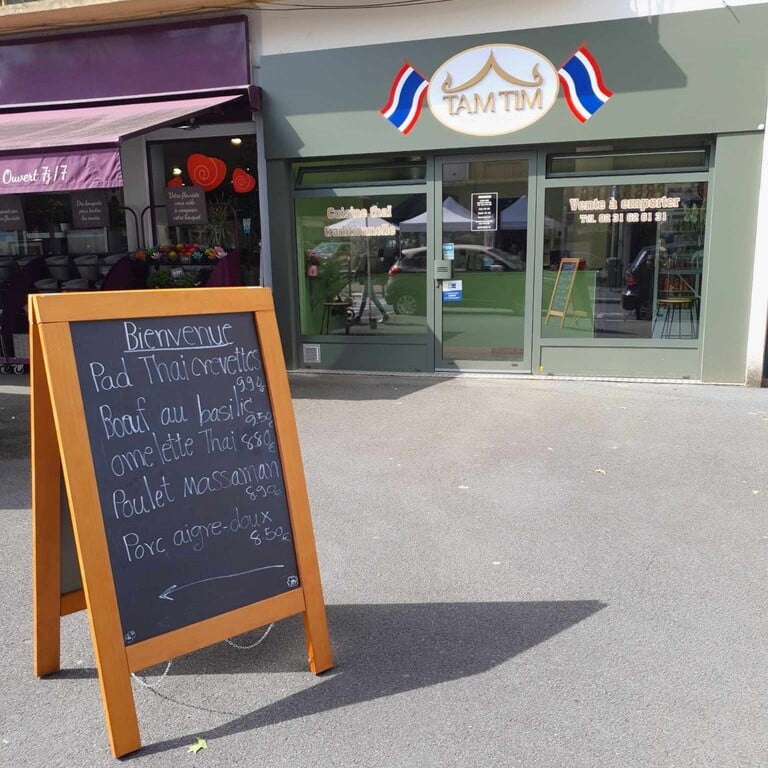 TAM TIM
Ouvert 7j/7
Cuisine thaï
traditionnelle
Vente à emporter
Tél. 02 31 82 61 31
Bienvenue
Pad Thai crevettes
9.90€
Bœuf au basilic
9.50€
omelette Thai 8.80€
Poulet massaman
8.90€
Porc aigre-doux
8.50€